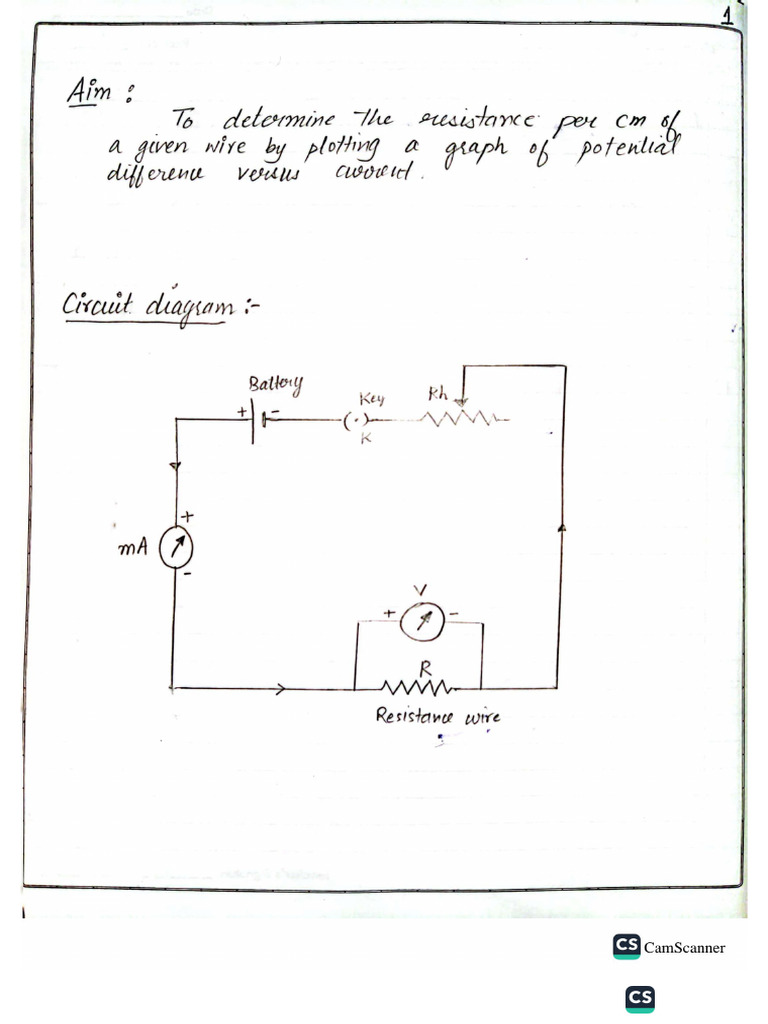 1
Aim :
To determine the resistance per cm of
a given wire by plotting a graph of potential
difference versus current.
Circuit diagram :-
Battery
+ -
Key
(·)
K
Rh
+
mA
-
V
+ -
R
Resistance wire
CS CamScanner
CS